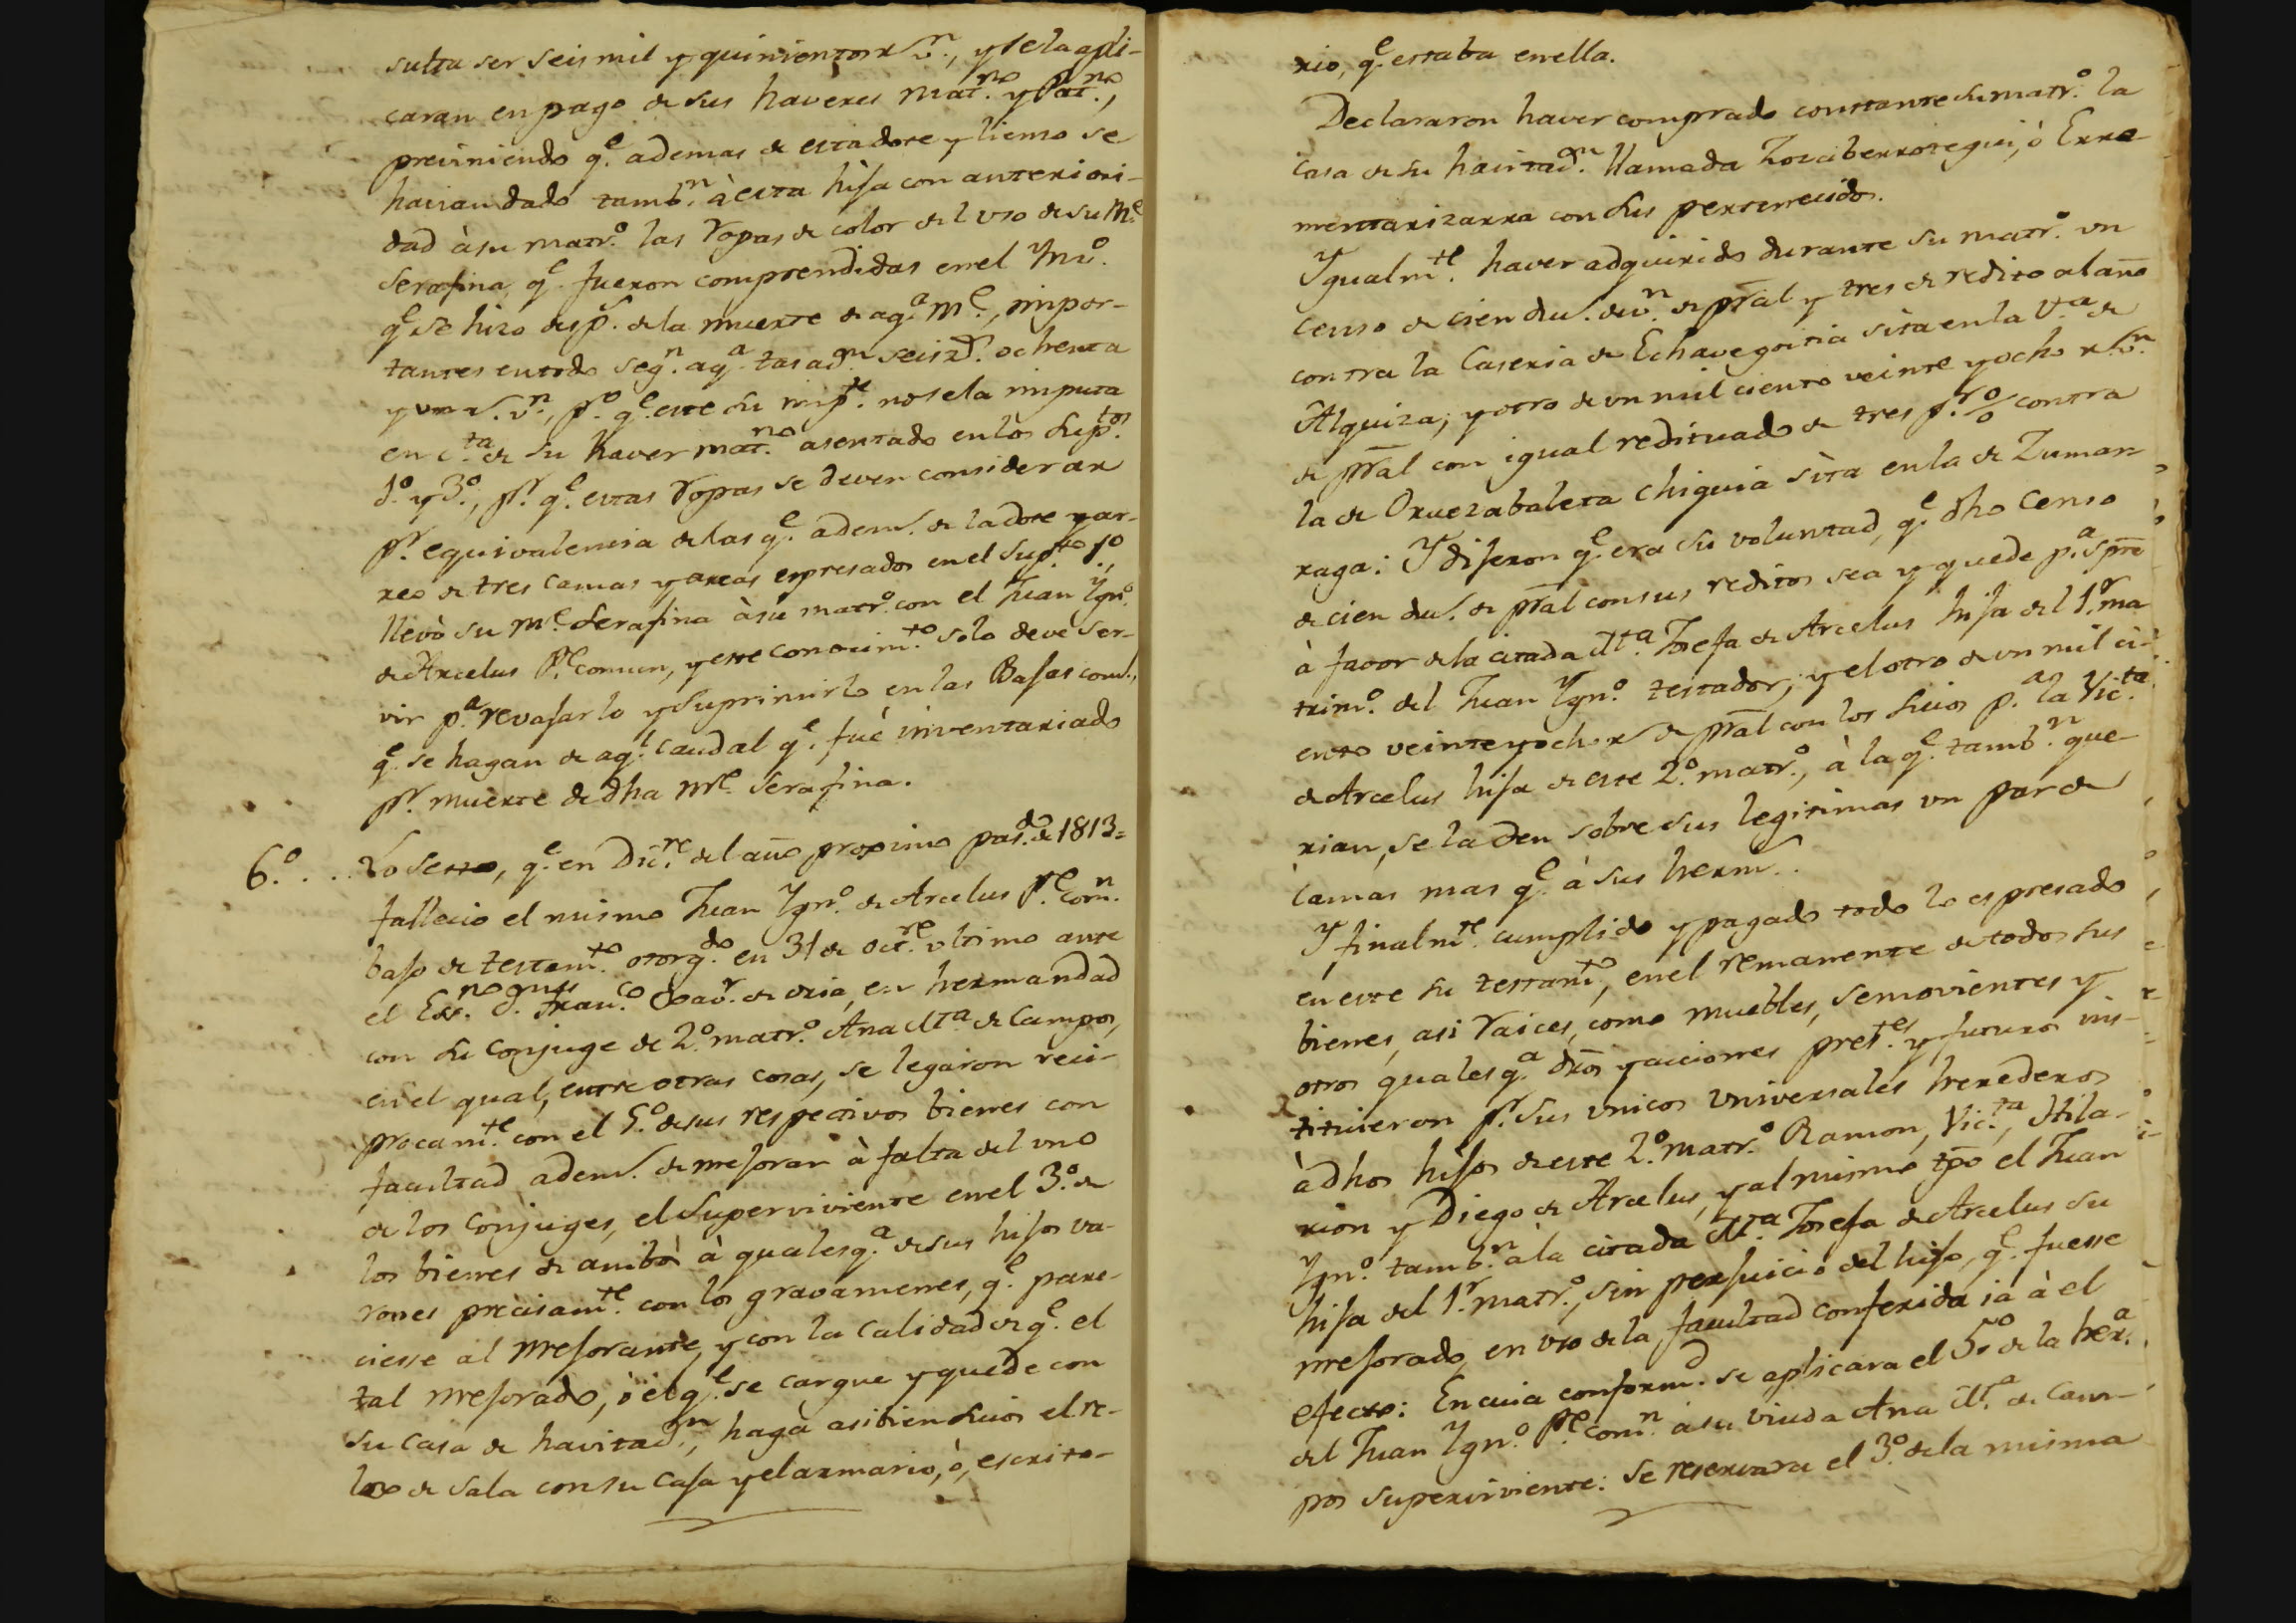 sulta ser seis mil y quinientos r.s v.n, y se la apli-
caran en pago de sus haveres mat.no y Pat.no,
previniendo q.e ademas de esta dote y lienso se
havian dado tamb.n à esta hija con anteriori-
dad à su matr.o las ropas de color del uso de su M.e
Serafina, q.e fueron comprendidas en el Ynv.o
q.e se hizo desp.s de la muerte de aq.a M.e, impor-
tantes en todo seg.n aq.a tasad.n seis z.s ochenta
y un r.s v.n, p.o q.e este su imp.te no se la imputa
en c.ta de su haver mat.no asentado en los Sup.tos
1.o y 3.o, p.r q.e estas ropas se deven considerar
p.r equivalencia de las q.e adem.s de la dote y ar-
reo de tres camas y arcas espresados en el Sup.to 1.o,
llevò su M.e Serafina à su matr.o con el Juan Ygn.o
de Arcelus P.e comun, y este conocim.to solo deve ser-
vir p.a revajarlo y suprimirlo en las Bajas com.s,
q.e se hagan de aq.l caudal q.e fuè inventariado
p.r muerte de dha M.e Serafina.
6.o ... Lo sesto, q.e en Dic.re del año proximo pas.do de 1813=
fallecio el mismo Juan Ygn.o de Arcelus P.e com.n
bajo de testam.to otorg.do en 31 de Oct.re ultimo ante
el Ess.no D. Fran.co Xav.r de Uria, en hermandad
con su conjuge de 2.o matr.o Ana M.a de Campos,
en el qual, entre otras cosas, se legaron reci-
procam.te con el 5.o de sus respectivos bienes con
facultad adem.s de mejorar à falta del uno
de los conjuges, el superviviente en el 3.o de
los bienes de ambos à qualesq.a de sus hijos va-
rones precisam.te con los gravamenes, q.e pare-
ciesse al mejorante, y con la calidad de q.e el
tal mejorado, ò el q.e se cargue y quede con
su casa de havitad.n, haga asibien suios el re-
lox de sala con su caja y el armario, ò, escrito-
rio, q.e estaba en ella.
Declararon haver comprado constante su matr.o la
casa de su havitad.n llamada Lozaberrotegui, ò Erre-
mentarizarra con sus pertenecidos.
Ygualm.te haver adquirido durante su matr.o un
censo de cien du.s de v.n de pral y tres de redito al año
contra la Caseria de Echavegoitia sita en la V.a de
Alquiza; y otro de un mil ciento veinte y ocho r.s v.n
de pral con igual redituado de tres p.r % contra
la de Oruezabaleta chiquia sita en la de Zumar-
raga: Y dijeron q.e era su voluntad, q.e dho censo
de cien du.s de pral con sus reditos sea y quede p.a spre
à favor de la citada M.a Josefa de Arcelus hija del 1.r ma
trim.o del Juan Ygn.o testador; y el otro de un mil ci-
ento veinte y ocho r.s de pral con los suios p.a la Vic.ta
de Arcelus hija de este 2.o matr.o, à la q.e tamb.n que-
rian, se la den sobre sus legitimas un par de
camas mas q.e à sus herm.s.
Y finalm.te cumplido y pagado todo lo espresado
en este su testam.to, en el remanente de todos sus
bienes, asi raices, como muebles, semovientes y
otros qualesq.a dros y acciones pres.tes y futuros ins-
tituieron p.r sus unicos universales herederos
à dhos hijos de este 2.o matr.o Ramon, Vic.ta, Hila-
rion y Diego de Arcelus, y al mismo tpo el Juan
Ygn.o tamb.n à la citada M.a Josefa de Arcelus su
hija del 1.r matr.o, sin perjuicio del hijo, q.e fuesse
mejorado, en uso de la facultad conferida ia à el
efecto: En cuia conform.d se aplicara el 5.o de la her.a
del Juan Ygn.o P.e com.n à su viuda Ana M.a de Cam-
pos superviviente: se reservara el 3.o de la misma